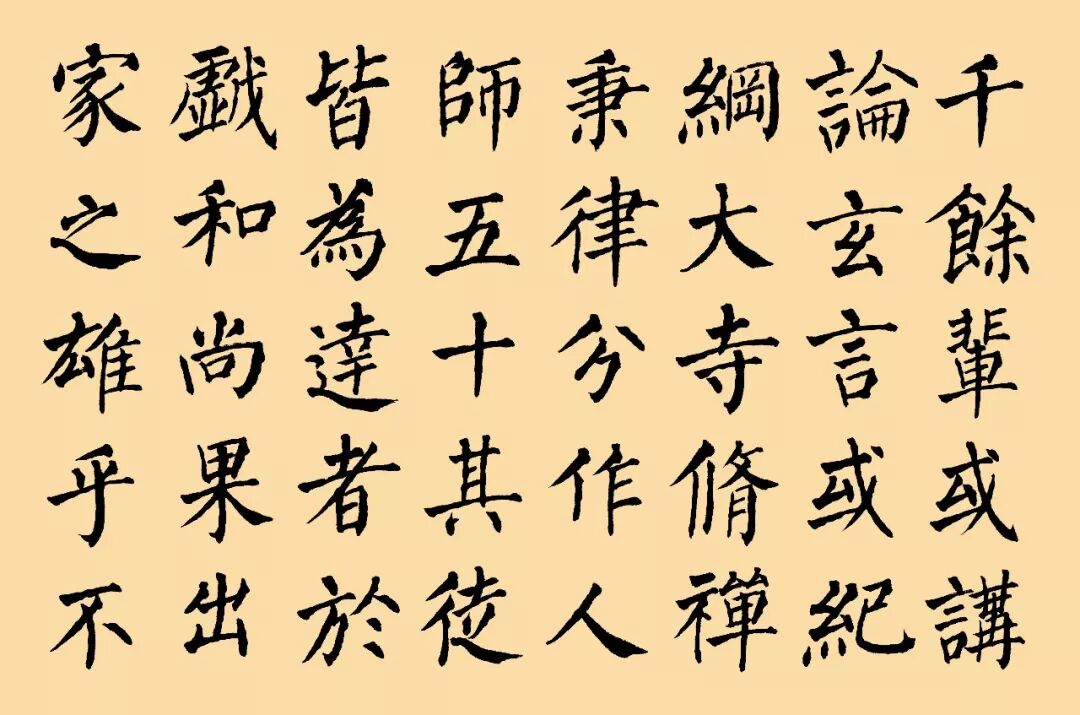 千餘輩或講
論玄言或紀
綱大寺脩禪
秉律分作人
師五十其徒
皆為達者於
戲和尚果出
家之雄乎不